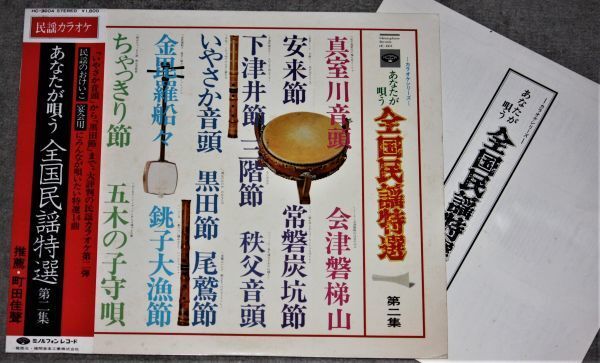 HC-3004 STEREO ¥1,800
民謡カラオケ
「いやさか音頭」から「黒田節」まで…大評判の民謡カラオケ第二弾
民謡のおけいこ 宴会用 にみんなが唄いたい特選14曲
あなたが唄う 全国民謡特選 第二集
推薦・町田佳聲
ミノルフォンレコード
カラオケシリーズ
あなたが唄う
全国民謡特選
第二集
真室川音頭 会津磐梯山
安来節 常磐炭坑節
下津井節 三階節 秩父音頭
いやさか音頭 黒田節 尾鷲節
金毘羅船々 銚子大漁節
ちゃっきり節 五木の子守唄
カラオケシリーズ
あなたが唄う
全国民謡特選
第二集